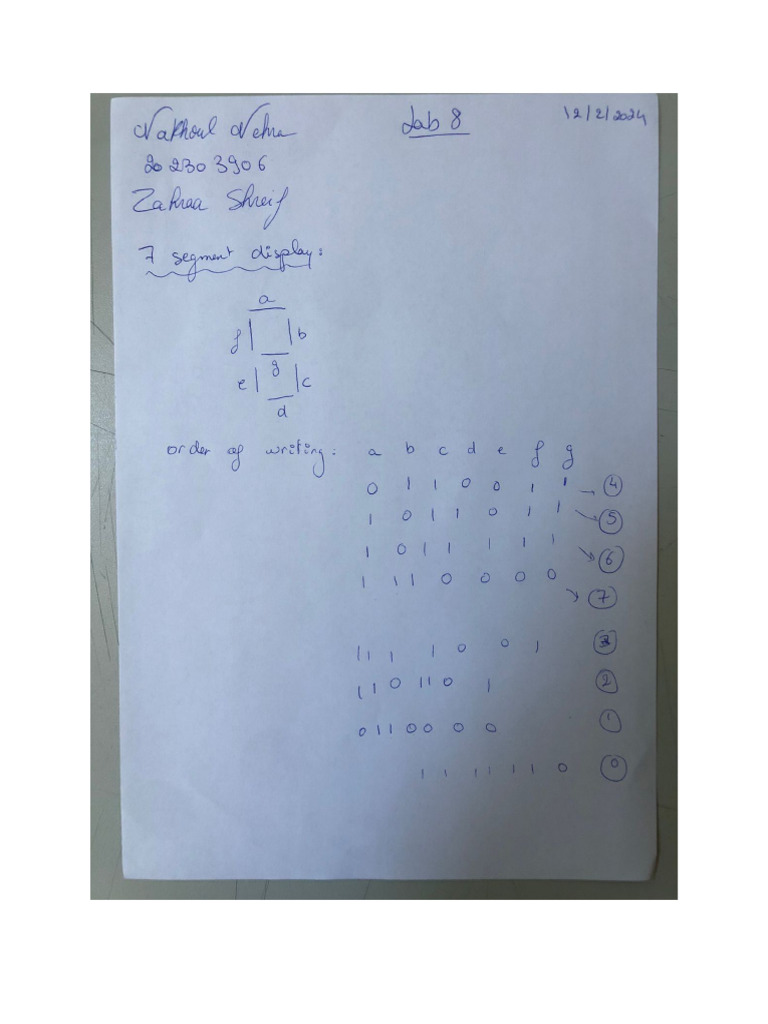 Nakhoul Nehra Lab 8 12/2/2024
202303906
Zahraa Shreif
7 segment display:
a
f b
g
e c
d
order of writing: a b c d e f g
0 1 1 0 0 1 1 → 4
1 0 1 1 0 1 1 → 5
1 0 1 1 1 1 1 → 6
1 1 1 0 0 0 0 → 7
1 1 1 1 0 0 1 3
1 1 0 1 1 0 1 2
0 1 1 0 0 0 0 1
1 1 1 1 1 1 0 0